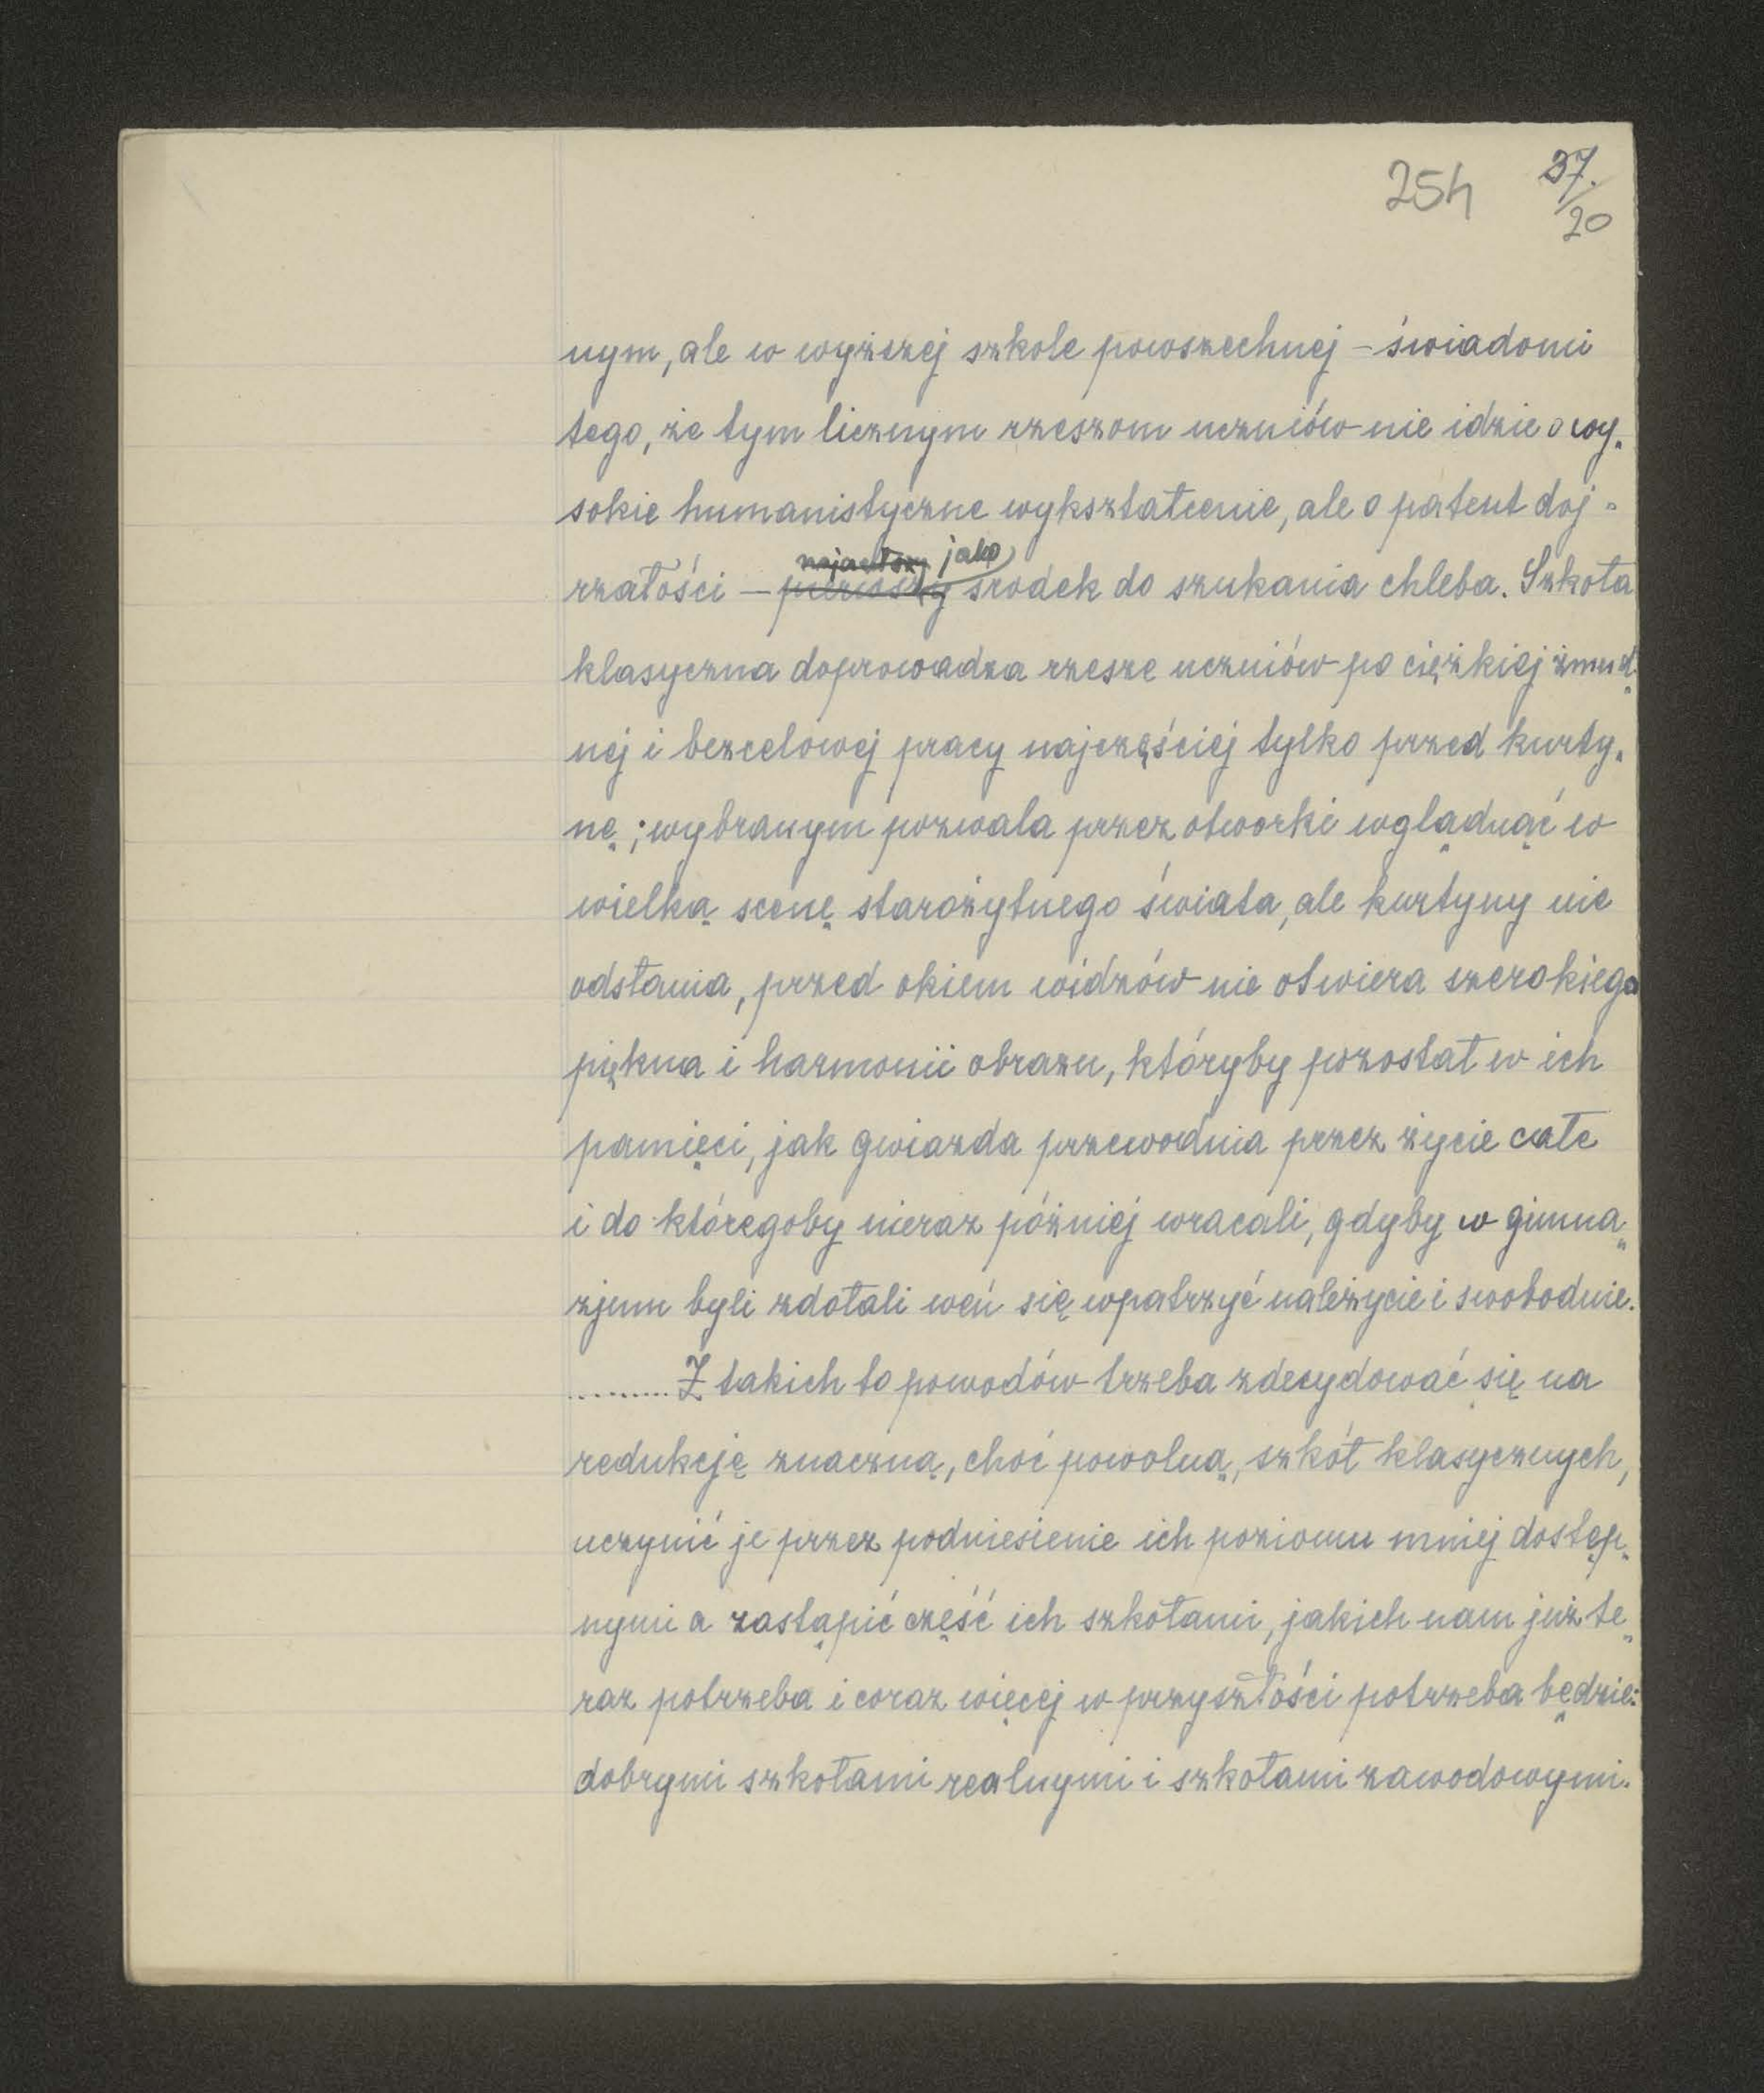 254 37.
20
nym, ale w wyższej szkole powszechnej – świadomi
tego, że tym licznym rzeszom uczniów nie idzie o wy-
sokie humanistyczne wykształcenie, ale o patent doj-
jako
rzałości – pierwszy środek do szukania chleba. Szkoła
klasyczna doprowadza rzesze uczniów po ciężkiej żmud-
nej i bezcelowej pracy najczęściej tylko przed kurty-
nę; wybranym pozwala przez otworki wglądnąć w
wielką scenę starożytnego świata, ale kurtyny nie
odsłania, przed okiem widzów nie otwiera szerokiego
piękna i harmonii obrazu, któryby pozostał w ich
pamięci, jak gwiazda przewodnia przez życie całe
i do któregoby nieraz później wracali, gdyby w gimna-
zjum byli zdołali weń się wpatrzyć należycie i swobodnie.
......... Z takich to powodów trzeba zdecydować się na
redukcję znaczną, choć powolną, szkół klasycznych,
uczynić je przez podniesienie ich poziomu mniej dostęp-
nymi a zastąpić część ich szkołami, jakich nam już te-
raz potrzeba i coraz więcej w przyszłości potrzeba będzie:
dobrymi szkołami realnymi i szkołami zawodowymi.